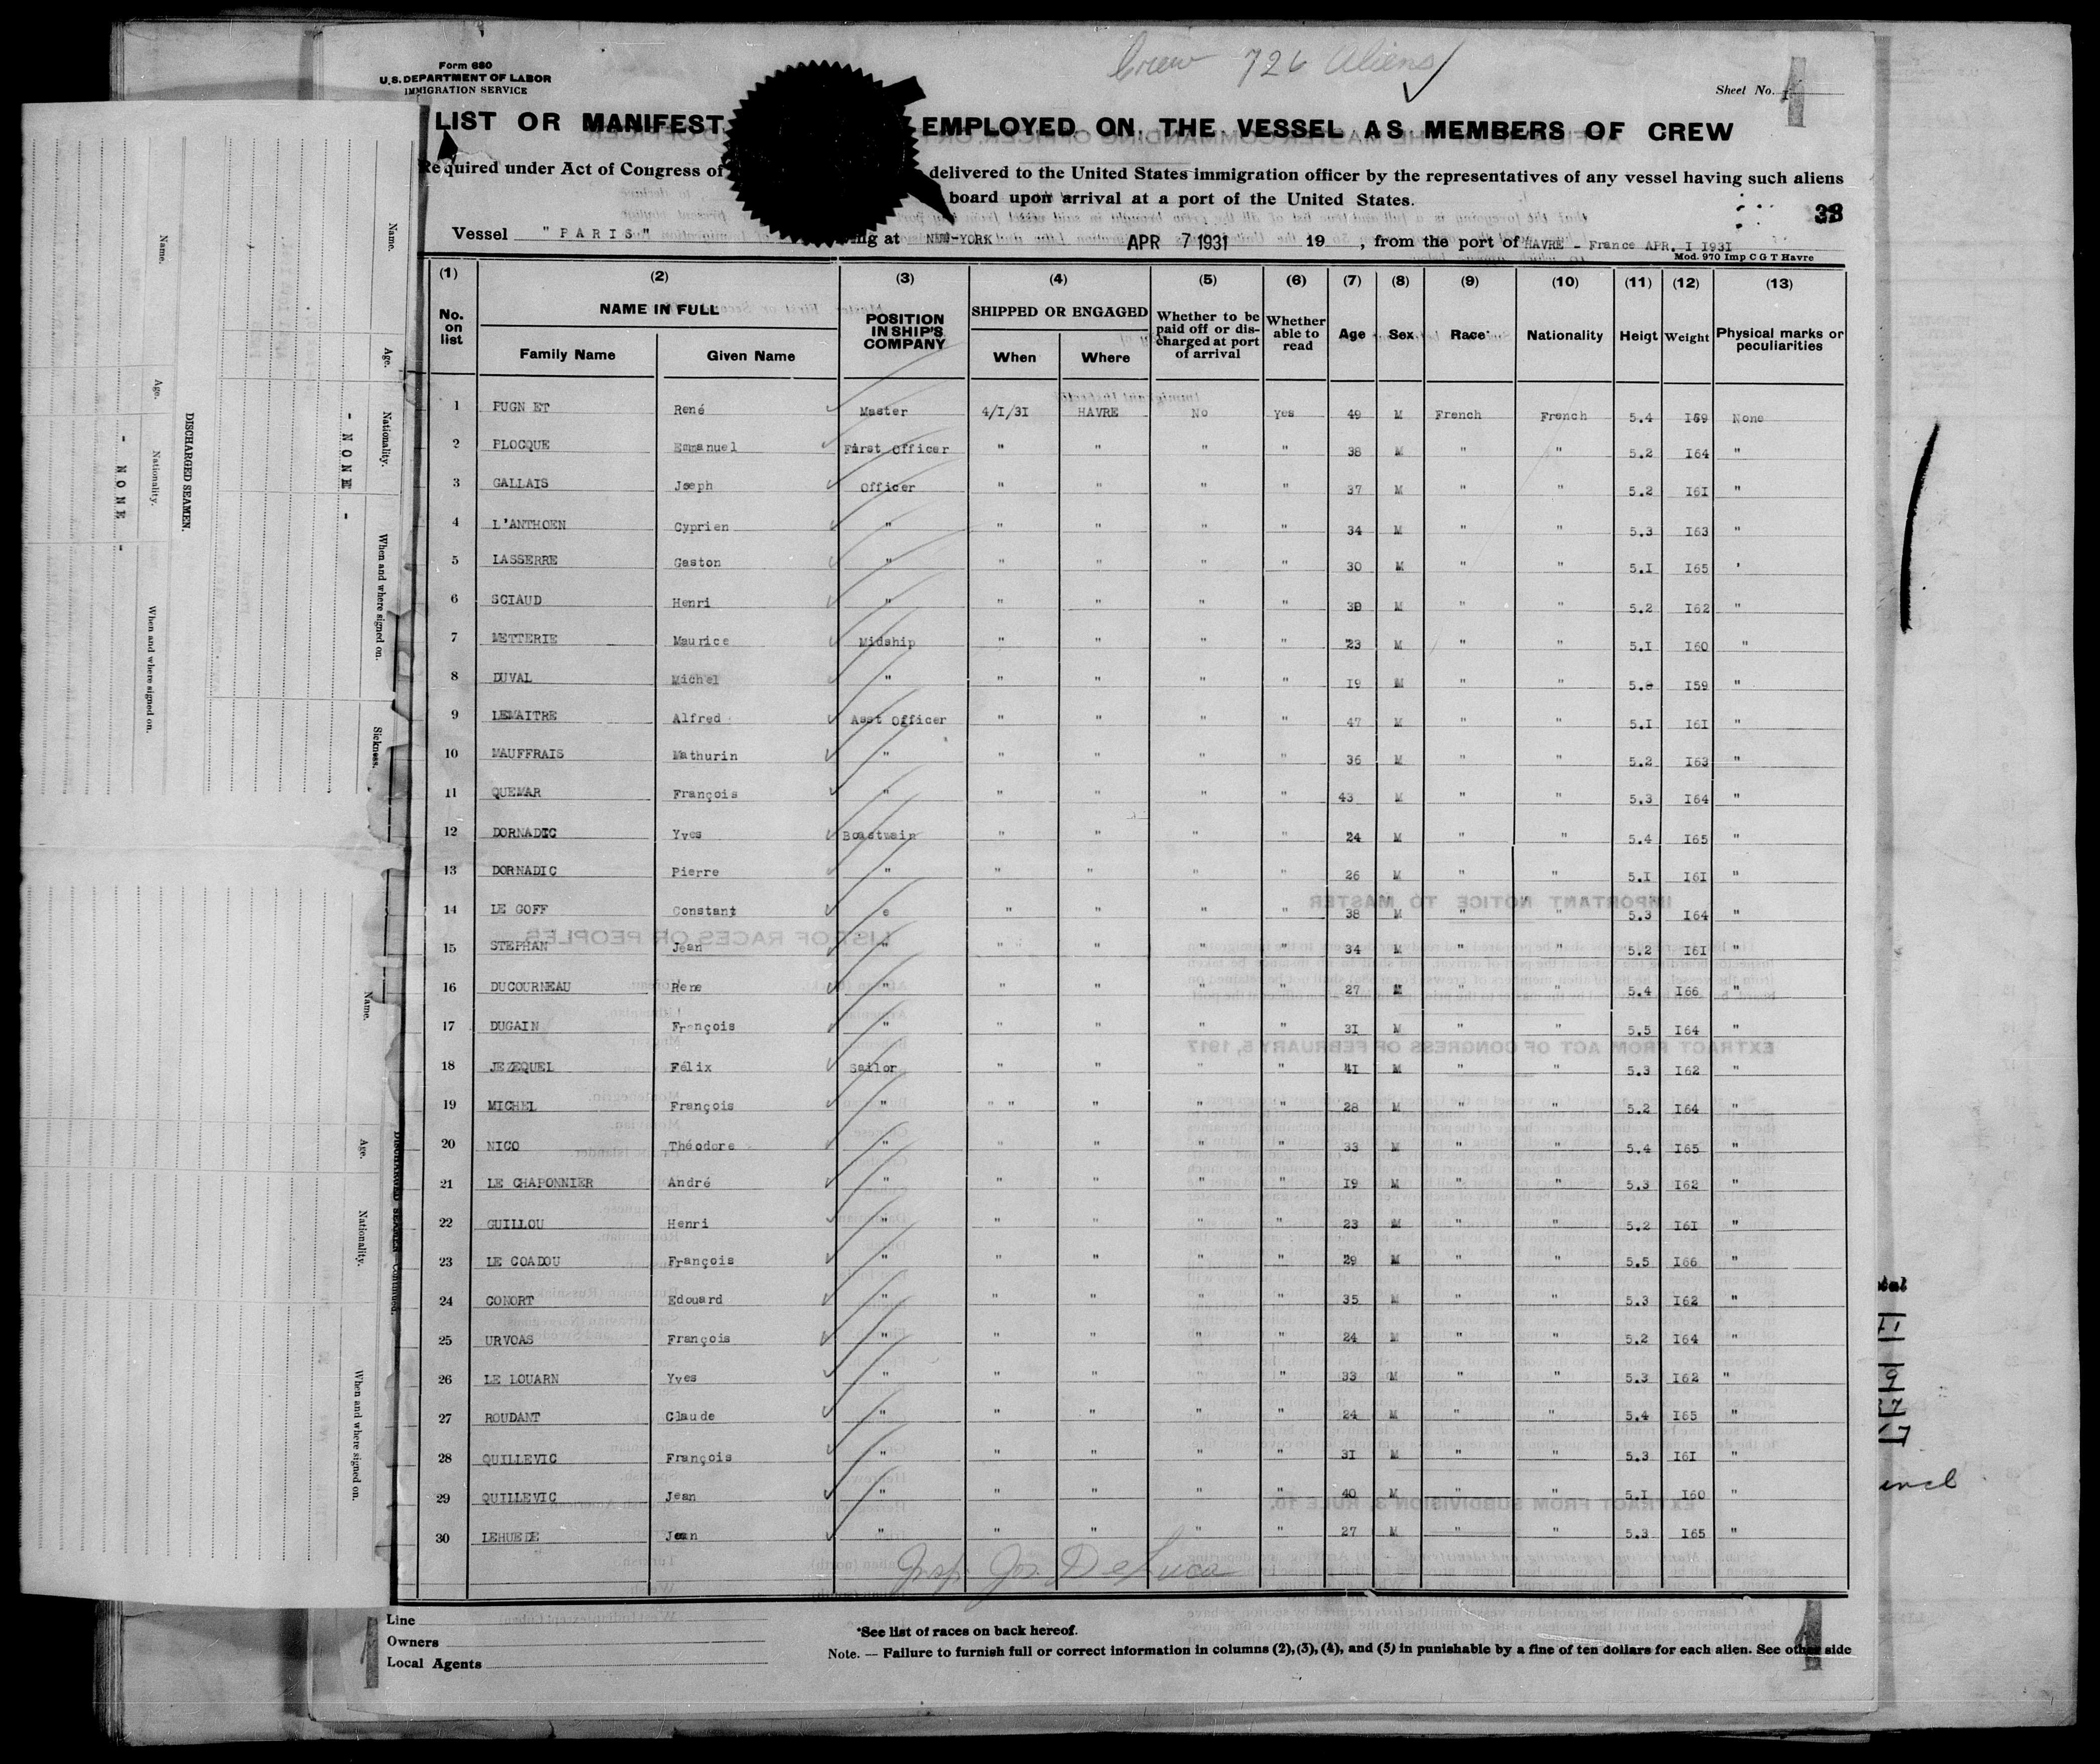 Crew 726 Aliens
Form 680
U.S. DEPARTMENT OF LABOR
IMMIGRATION SERVICE
Sheet No. I
LIST OR MANIFEST EMPLOYED ON THE VESSEL AS MEMBERS OF CREW
Required under Act of Congress of delivered to the United States immigration officer by the representatives of any vessel having such aliens
board upon arrival at a port of the United States.
38
Vessel "PARIS" ing at NEW-YORK APR 7 1931 19 , from the port of HAVRE - France APR. I I93I
Mod. 970 Imp C G T Havre
(1) (2) (3) (4) (5) (6) (7) (8) (9) (10) (11) (12) (13)
No. on list NAME IN FULL Family Name Given Name POSITION IN SHIP'S COMPANY SHIPPED OR ENGAGED When Where Whether to be paid off or discharged at port of arrival Whether able to read Age Sex Race* Nationality Heigt Weight Physical marks or peculiarities
1 PUGNET René Master 4/I/3I HAVRE No Yes 49 M French French 5.4 I59 None
2 PLOCQUE Emmanuel First Officer " " " " 38 M " " 5.2 I64 "
3 GALLAIS Joseph Officer " " " " 37 M " " 5.2 I6I "
4 L'ANTHOEN Cyprien " " " " " 34 M " " 5.3 I63 "
5 LASSERRE Gaston " " " " " 30 M " " 5.I I65 '
6 SCIAUD Henri " " " " " 30 M " " 5.2 I62 "
7 METTERIE Maurice Midship " " " " 23 M " " 5.I I60 "
8 DUVAL Michel " " " " " I9 M " " I59 "
9 LEMAITRE Alfred Asst Officer " " " " 47 M " " 5.I I6I "
10 MAUFFRAIS Mathurin " " " " " 36 M " " 5.2 I63 "
11 QUEMAR François " " " " " 43 M " " 5.3 I64 "
12 DORNADIC Yves Boastwain " " " " 24 M " " 5.4 I65 "
13 DORNADIC Pierre " " " " " 26 M " " 5.I I6I "
14 LE GOFF Constant e " " " " 38 M " " 5.3 I64 "
15 STEPHAN Jean " " " " " 34 M " " 5.2 I6I "
16 DUCOURNEAU Rene " " " " " 27 M " " 5.4 I66 "
17 DUGAIN François " " " " " 3I M " " 5.5 I64 "
18 JEZEQUEL Félix Sailor " " " " 4I M " " 5.3 I62 "
19 MICHEL François " " " " " " 28 M " " 5.2 I64 "
20 NICO Théodore " " " " " 33 M " " 5.4 I65 "
21 LE CHAPONNIER André " " " " " I9 M " " 5.3 I62 "
22 GUILLOU Henri " " " " " 23 M " " 5.2 I6I "
23 LE COADOU François " " " " " 29 M " " 5.5 I66 "
24 CONORT Edouard " " " " " 35 M " " 5.3 I62 "
25 URVOAS François " " " " " 24 M " " 5.2 I64 "
26 LE LOUARN Yves " " " " " 33 M " " 5.3 I62 "
27 ROUDANT Claude " " " " " 24 M " " 5.4 I65 "
28 QUILLEVIC François " " " " " 3I M " " 5.3 I6I "
29 QUILLEVIC Jean " " " " " 40 M " " 5.I I60 "
30 LEHUEDE Jean " " " " " 27 M " " 5.3 I65 "
Insp. Jos. DeLuca
Line
Owners
Local Agents
*See list of races on back hereof.
Note. — Failure to furnish full or correct information in columns (2), (3), (4), and (5) in punishable by a fine of ten dollars for each alien. See other side
Name. Age. Nationality. When and where signed on. Sickness.
- NONE -
DISCHARGED SEAMEN.
Name. Age. Nationality. When and where signed on.
- NONE -
DISCHARGED SEAMEN—Continued.
Name. Age. Nationality. When and where signed on.